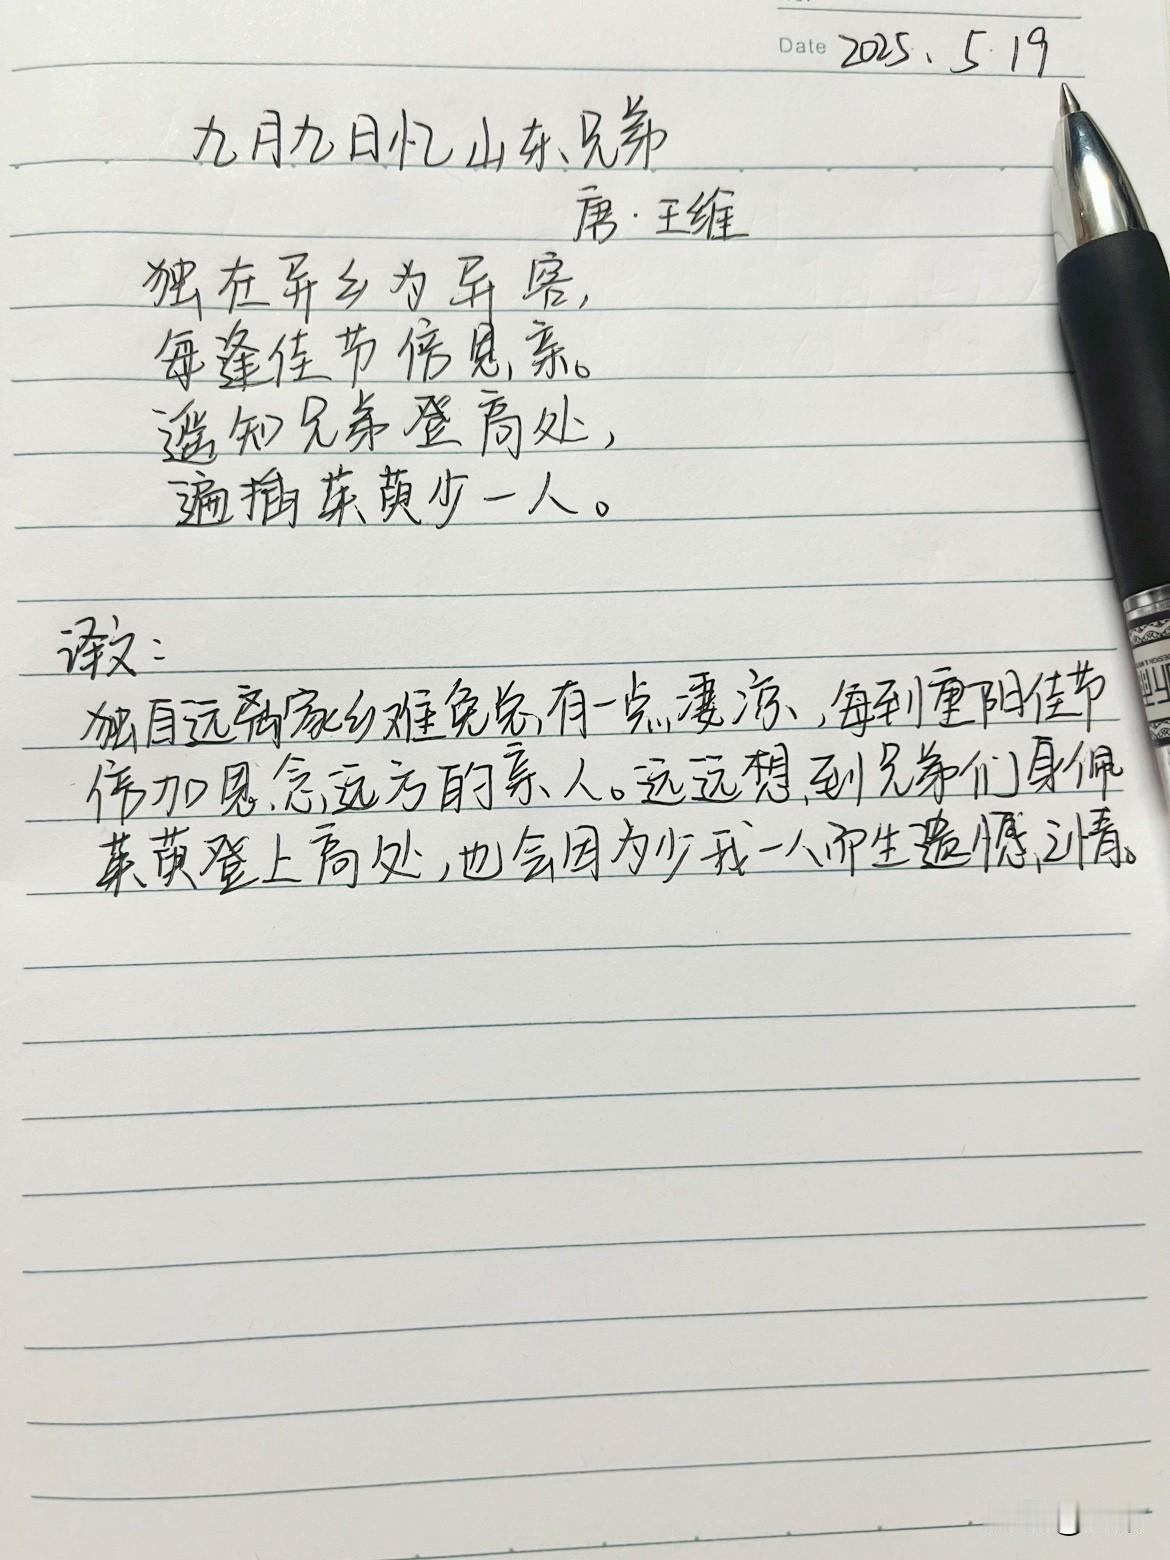 Date 2025.5.19
九月九日忆山东兄弟
唐·王维
独在异乡为异客,
每逢佳节倍思亲。
遥知兄弟登高处,
遍插茱萸少一人。
译文:
独自远离家乡难免总有一点凄凉,每到重阳佳节
倍加思念远方的亲人。远远想到兄弟们身佩
茱萸登上高处,也会因为少我一人而生遗憾之情。